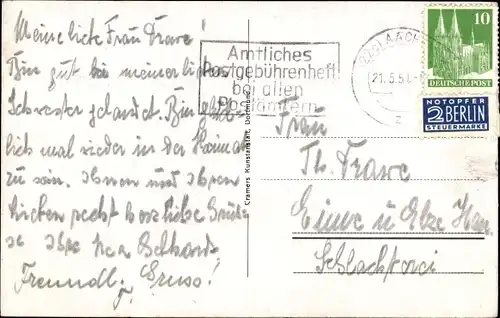 Meine liebe Frau Trawe!
Bin gut bei meiner lieben
Schwester gelandet. Bin
lich mal wieder in der Heimat
zu sein. Ihnen und Ihren
Lieben recht herzliche Grüße
Ihre
Freundl. Gruss!
Amtliches
Postgebührenheft
bei allen
Postämtern
21.5.51
10
DEUTSCHE POST
NOTOPFER
2 BERLIN
STEUERMARKE
Cramers Kunstanstalt, Dortmund
Frau
Th. Trawe
Eime u/ Elze Han.
Schlachterei